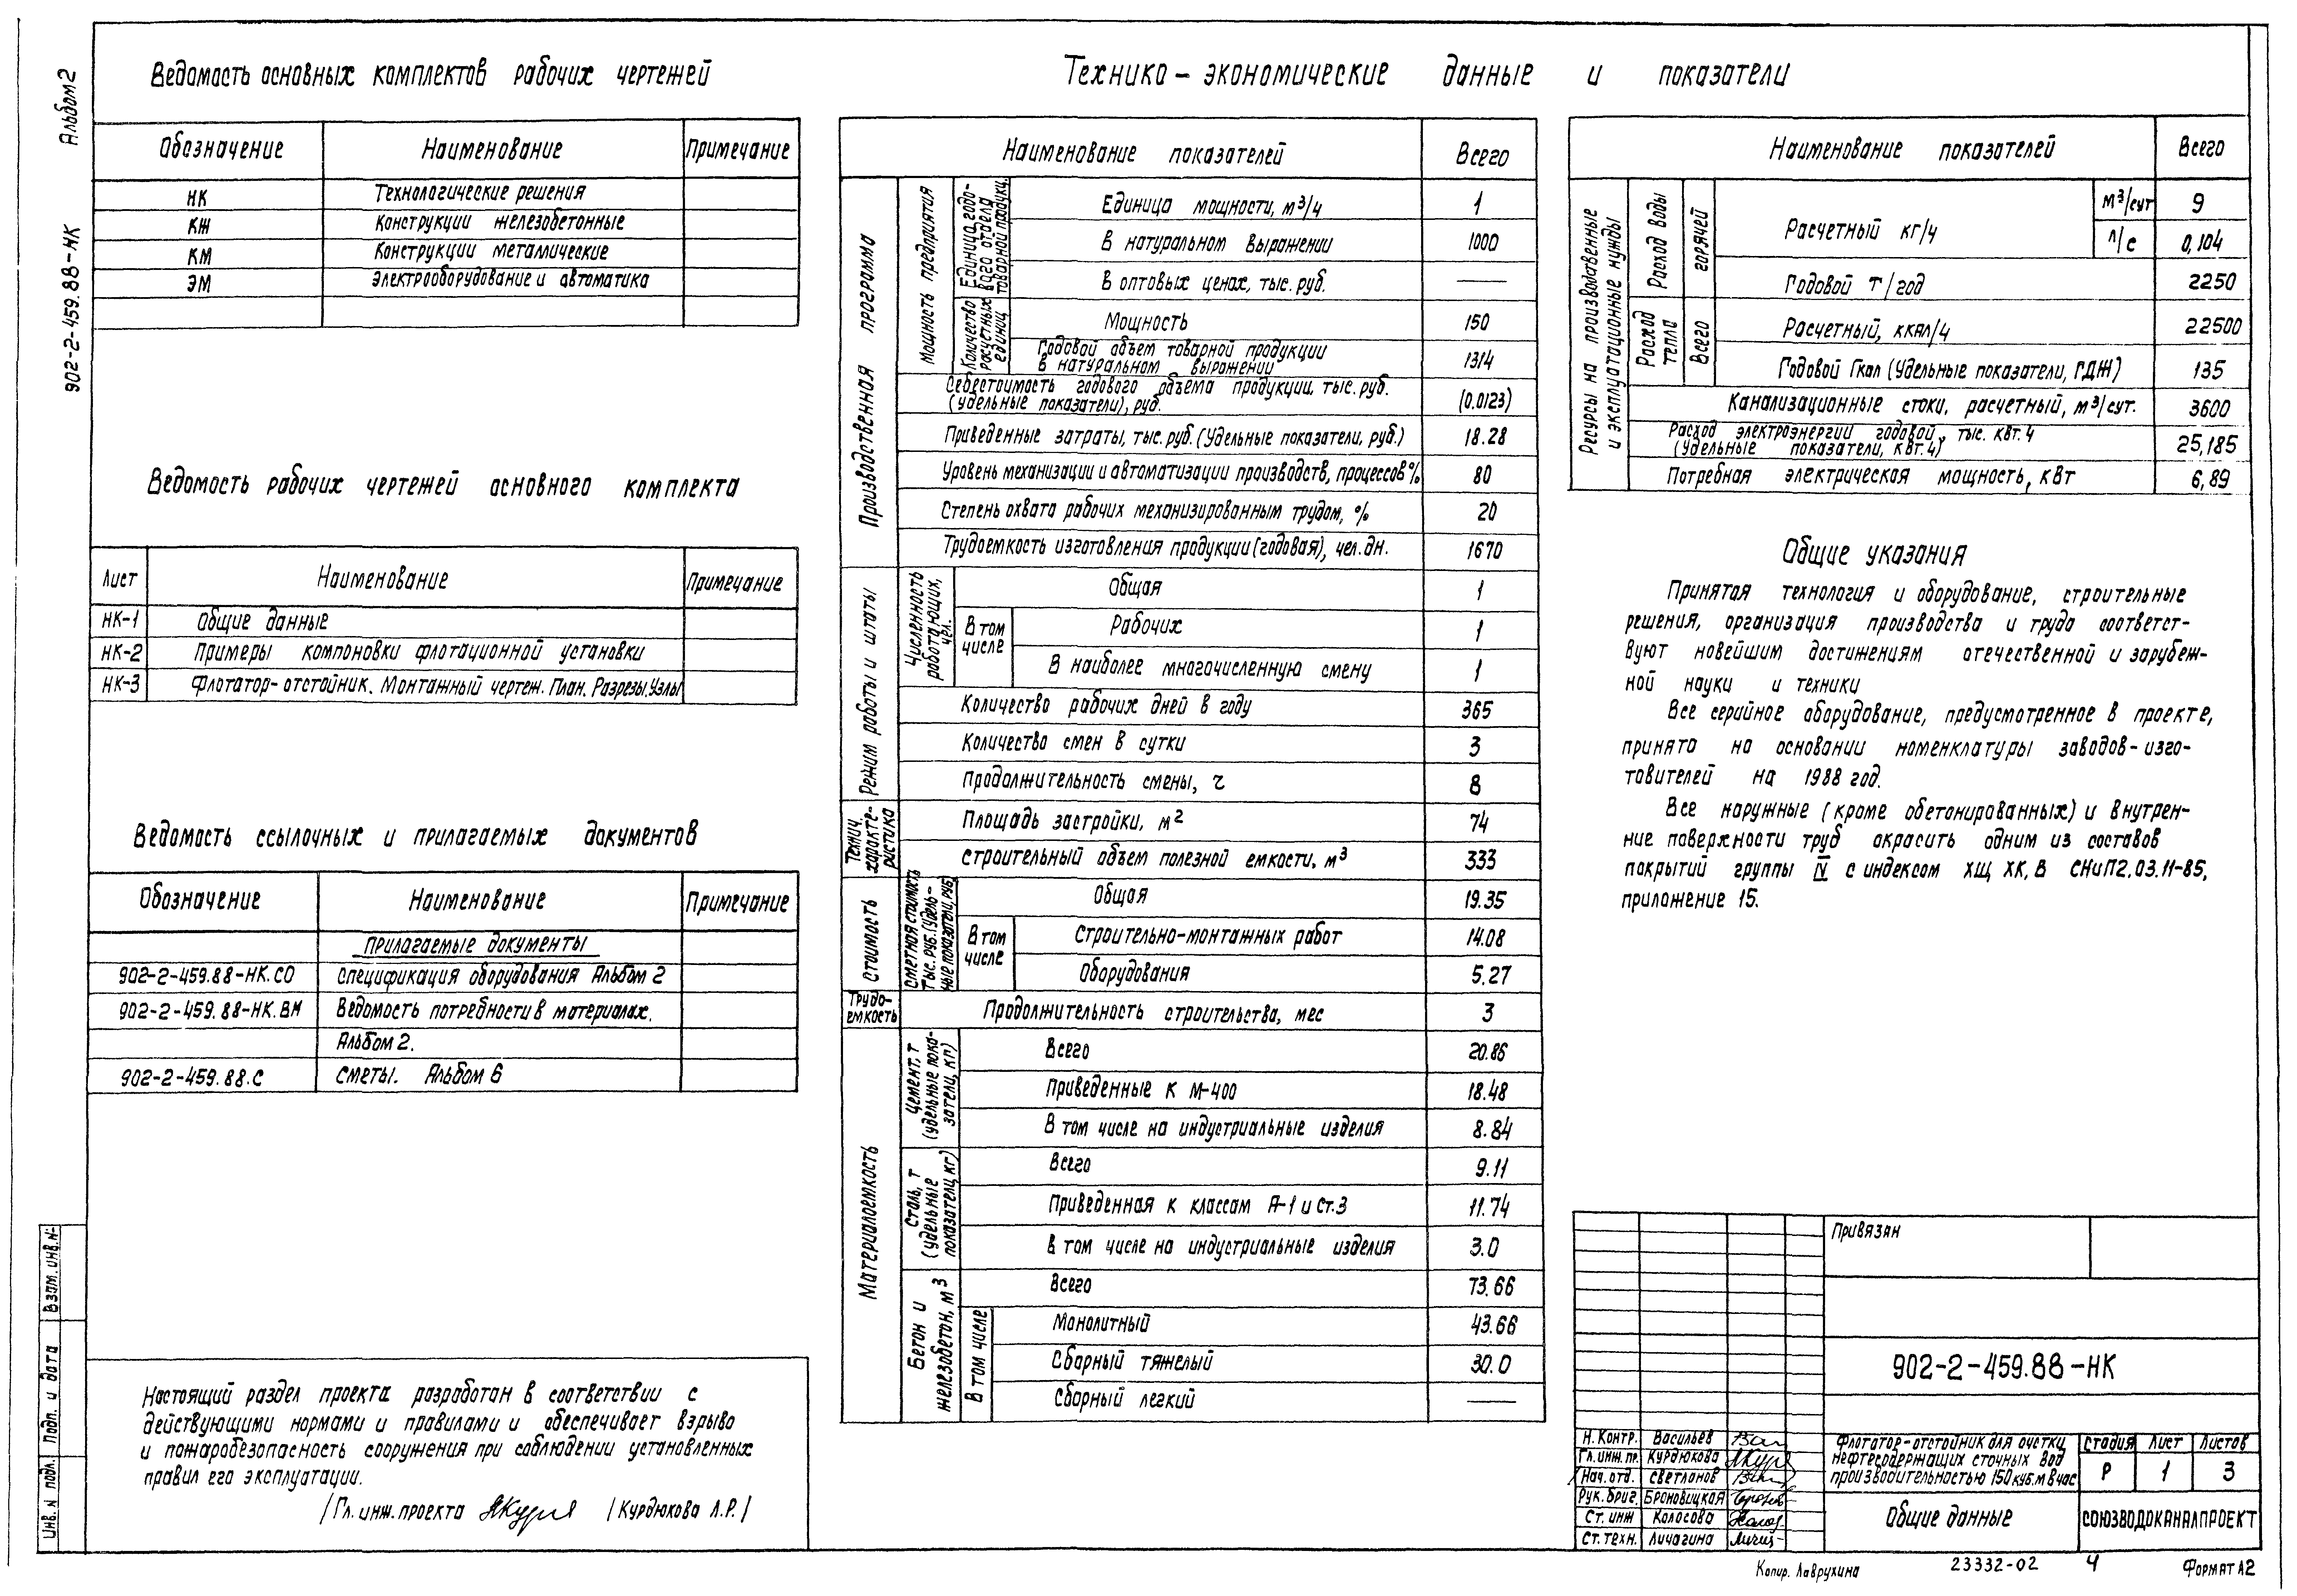 Альбом 2
902-2-459.88-НК
Ведомость основных комплектов рабочих чертежей
Обозначение Наименование Примечание
НК Технологические решения
КЖ Конструкции железобетонные
КМ Конструкции металлические
ЭМ Электрооборудование и автоматика
Ведомость рабочих чертежей основного комплекта
Лист Наименование Примечание
НК-1 Общие данные
НК-2 Примеры компоновки флотационной установки
НК-3 Флотатор-отстойник. Монтажный чертеж. План. Разрезы. Узлы
Ведомость ссылочных и прилагаемых документов
Обозначение Наименование Примечание
Прилагаемые документы
902-2-459.88-НК.СО Спецификация оборудования Альбом 2
902-2-459.88-НК.ВМ Ведомость потребности в материалах.
Альбом 2.
902-2-459.88.С Сметы. Альбом 6
Настоящий раздел проекта разработан в соответствии с
действующими нормами и правилами и обеспечивает взрыво
и пожаробезопасность сооружения при соблюдении установленных
правил его эксплуатации.
/Гл. инж. проекта /Курдюкова Л.Р./
Взам. инв. №
Подп. и дата
Инв. № подл.
Технико-экономические данные и показатели
Наименование показателей Всего
Производственная программа
Мощность предприятия
Единица годо-
вого отдела
товарной продукц.
Единица мощности, м³/ч 1
В натуральном выражении 1000
В оптовых ценах, тыс. руб. —
Количество
расчетных
единиц
Мощность 150
Годовой объем товарной продукции
в натуральном выражении 1314
Себестоимость годового объема продукции, тыс. руб.
(удельные показатели), руб. (0.0123)
Приведенные затраты, тыс. руб. (Удельные показатели, руб.) 18.28
Уровень механизации и автоматизации производств, процессов % 80
Степень охвата рабочих механизированным трудом, % 20
Трудоемкость изготовления продукции (годовая), чел. дн. 1670
Режим работы и штаты
Численность
работающих,
чел.
Общая 1
В том
числе
Рабочих 1
В наиболее многочисленную смену 1
Количество рабочих дней в году 365
Количество смен в сутки 3
Продолжительность смены, ч 8
Технич.
характе-
ристика
Площадь застройки, м² 74
Строительный объем полезной емкости, м³ 333
Стоимость
Сметная стоимость
тыс. руб. (Удель-
ные показатели, руб)
Общая 19.35
В том
числе
Строительно-монтажных работ 14.08
Оборудования 5.27
Трудо-
емкость
Продолжительность строительства, мес 3
Материалоемкость
Цемент, т
(удельные пока-
затели, кг)
Всего 20.86
Приведенные к М-400 18.48
В том числе на индустриальные изделия 8.84
Сталь, т
(удельные
показатели, кг)
Всего 9.11
Приведенная к классам А-1 и Ст.3 11.74
В том числе на индустриальные изделия 3.0
Бетон и
железобетон, м³
Всего 73.66
В том числе
Монолитный 43.66
Сборный тяжелый 30.0
Сборный легкий —
Наименование показателей Всего
Ресурсы на производственные
и эксплуатационные нужды
Расход воды
горячей
Расчетный кг/ч м³/сут 9
л/с 0,104
Годовой т/год 2250
Расход
тепла
Всего
Расчетный, ккал/ч 22500
Годовой Гкал (Удельные показатели, ГДЖ) 135
Канализационные стоки, расчетный, м³/сут. 3600
Расход электроэнергии годовой, тыс. квт. ч
(Удельные показатели, квт. ч) 25,185
Потребная электрическая мощность, квт 6,89
Общие указания
Принятая технология и оборудование, строительные
решения, организация производства и труда соответст-
вуют новейшим достижениям отечественной и зарубеж-
ной науки и техники
Все серийное оборудование, предусмотренное в проекте,
принято на основании номенклатуры заводов-изго-
товителей на 1988 год.
Все наружные (кроме обетонированных) и внутрен-
ние поверхности труб окрасить одним из составов
покрытий группы IV с индексом ХЩ ХК, В СНиП2.03.11-85,
приложение 15.
Привязан
902-2-459.88-НК
Н. Контр. Васильев
Гл. инж. пр. Курдюкова
Нач. отд. Светланов
Рук. бриг. Броновицкая
Ст. инж Колосова
Ст. техн. Личагина
Флотатор-отстойник для очистки
нефтесодержащих сточных вод
производительностью 150 куб. м в час
Стадия Лист Листов
Р 1 3
Общие данные
СОЮЗВОДОКАНАЛПРОЕКТ
Копир. Лаврухина 23332-02 4 Формат А2